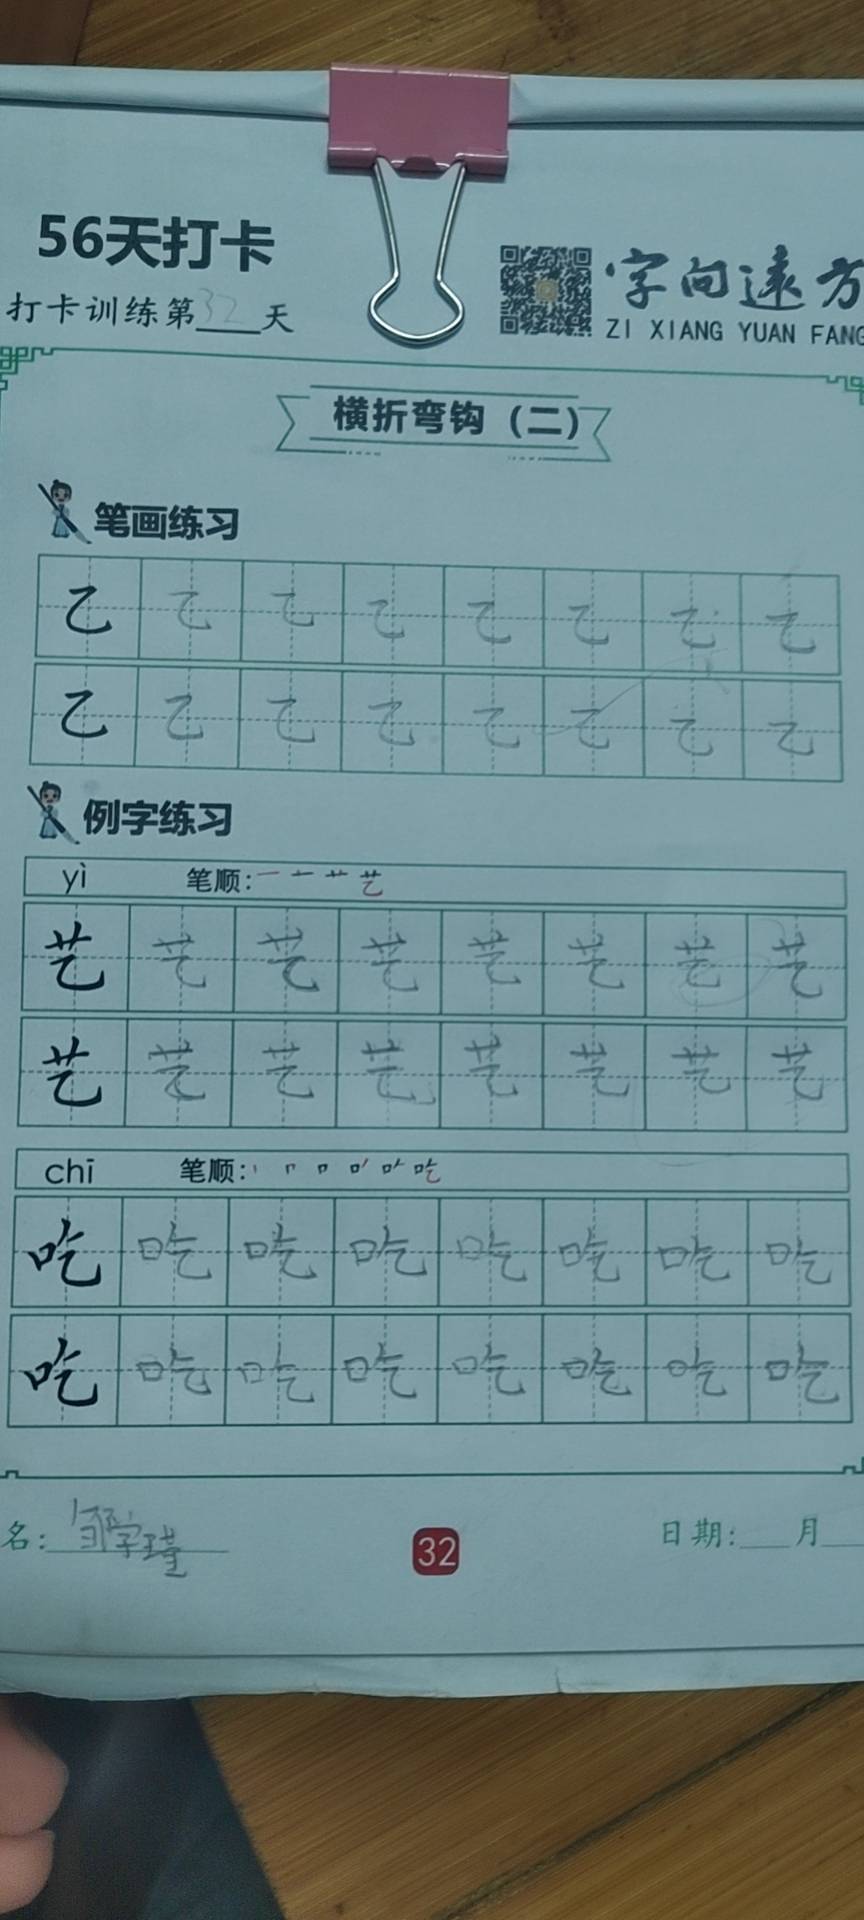 56天打卡
打卡训练第32天
字向远方
ZI XIANG YUAN FANG
横折弯钩（二）
笔画练习
乙 乙 乙 乙 乙 乙 乙 乙
乙 乙 乙 乙 乙 乙 乙 乙
例字练习
yì 笔顺: 一 十 艹 艺
艺 艺 艺 艺 艺 艺 艺 艺
艺 艺 艺 艺 艺 艺 艺 艺
chī 笔顺: 吃
吃 吃 吃 吃 吃 吃 吃 吃
吃 吃 吃 吃 吃 吃 吃 吃
名: 邹学瑾
32
日期: 月